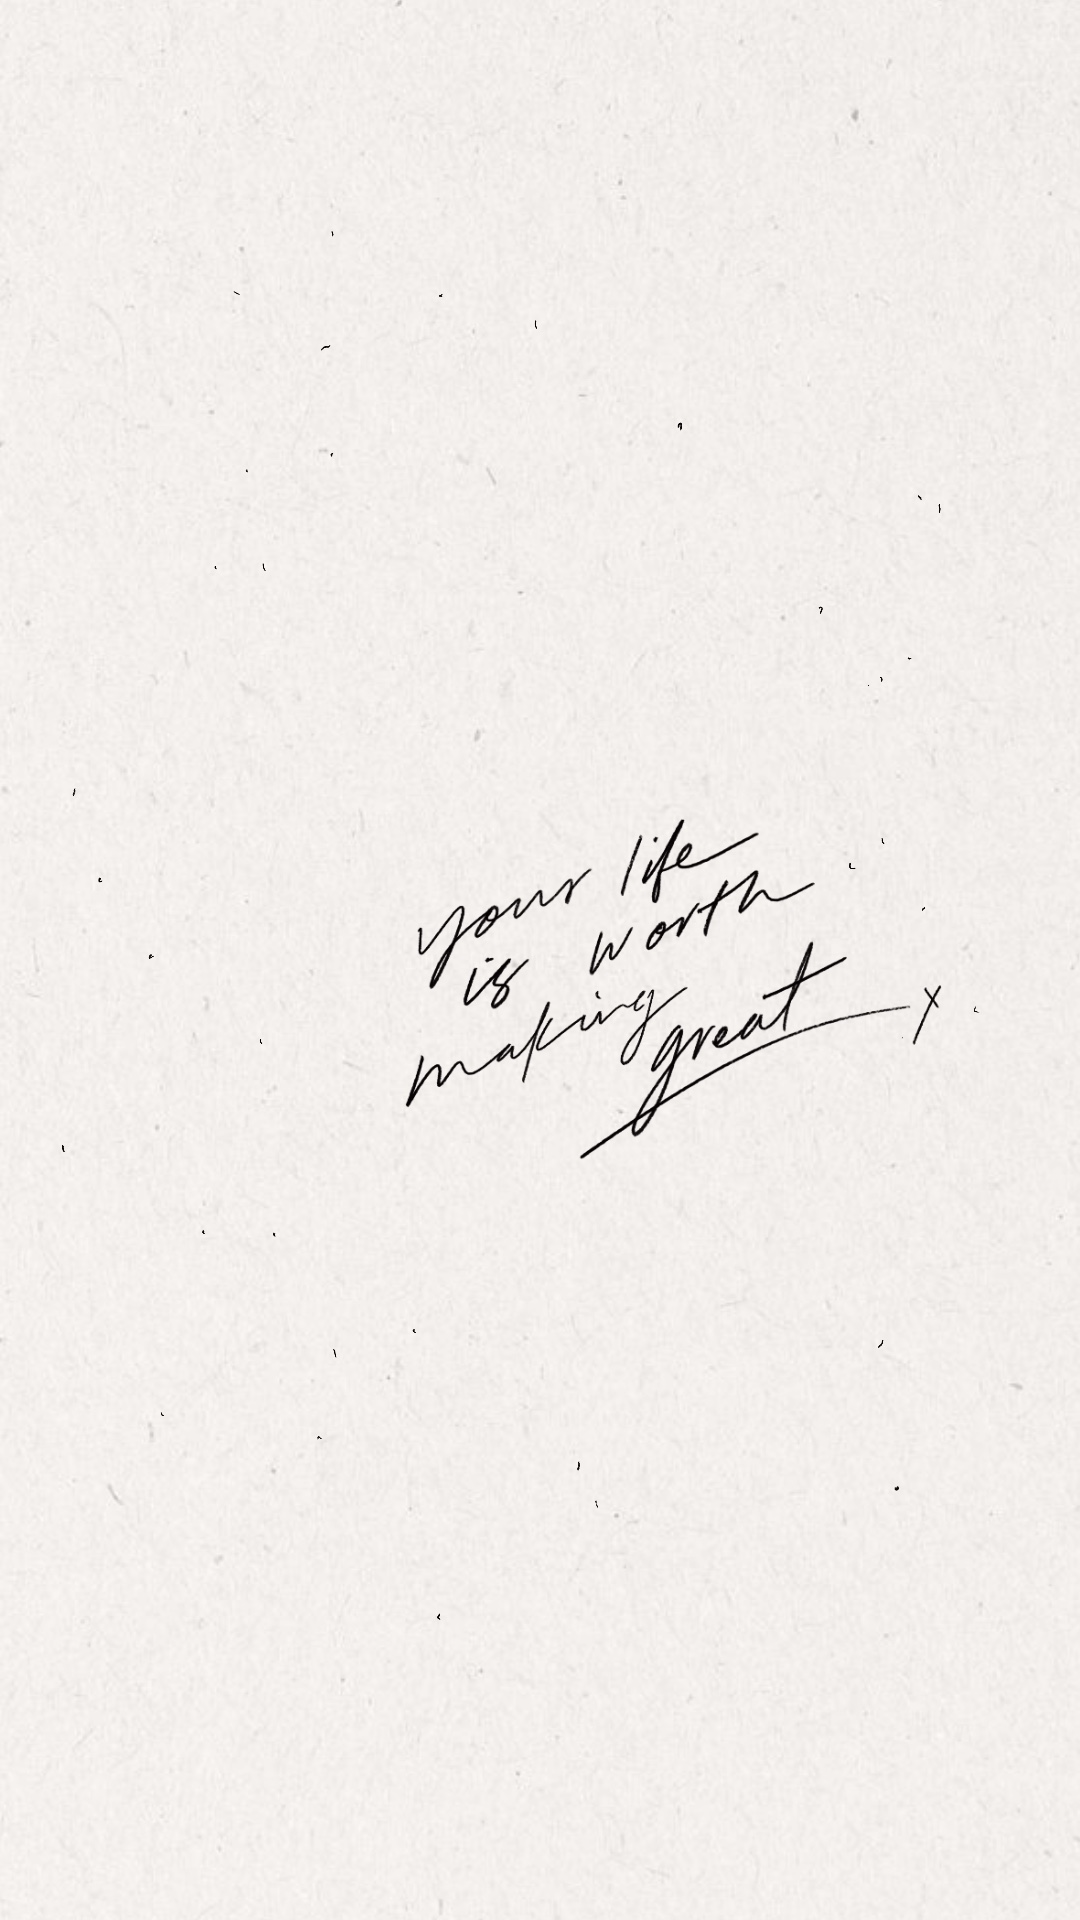 your life
is worth
making
great x